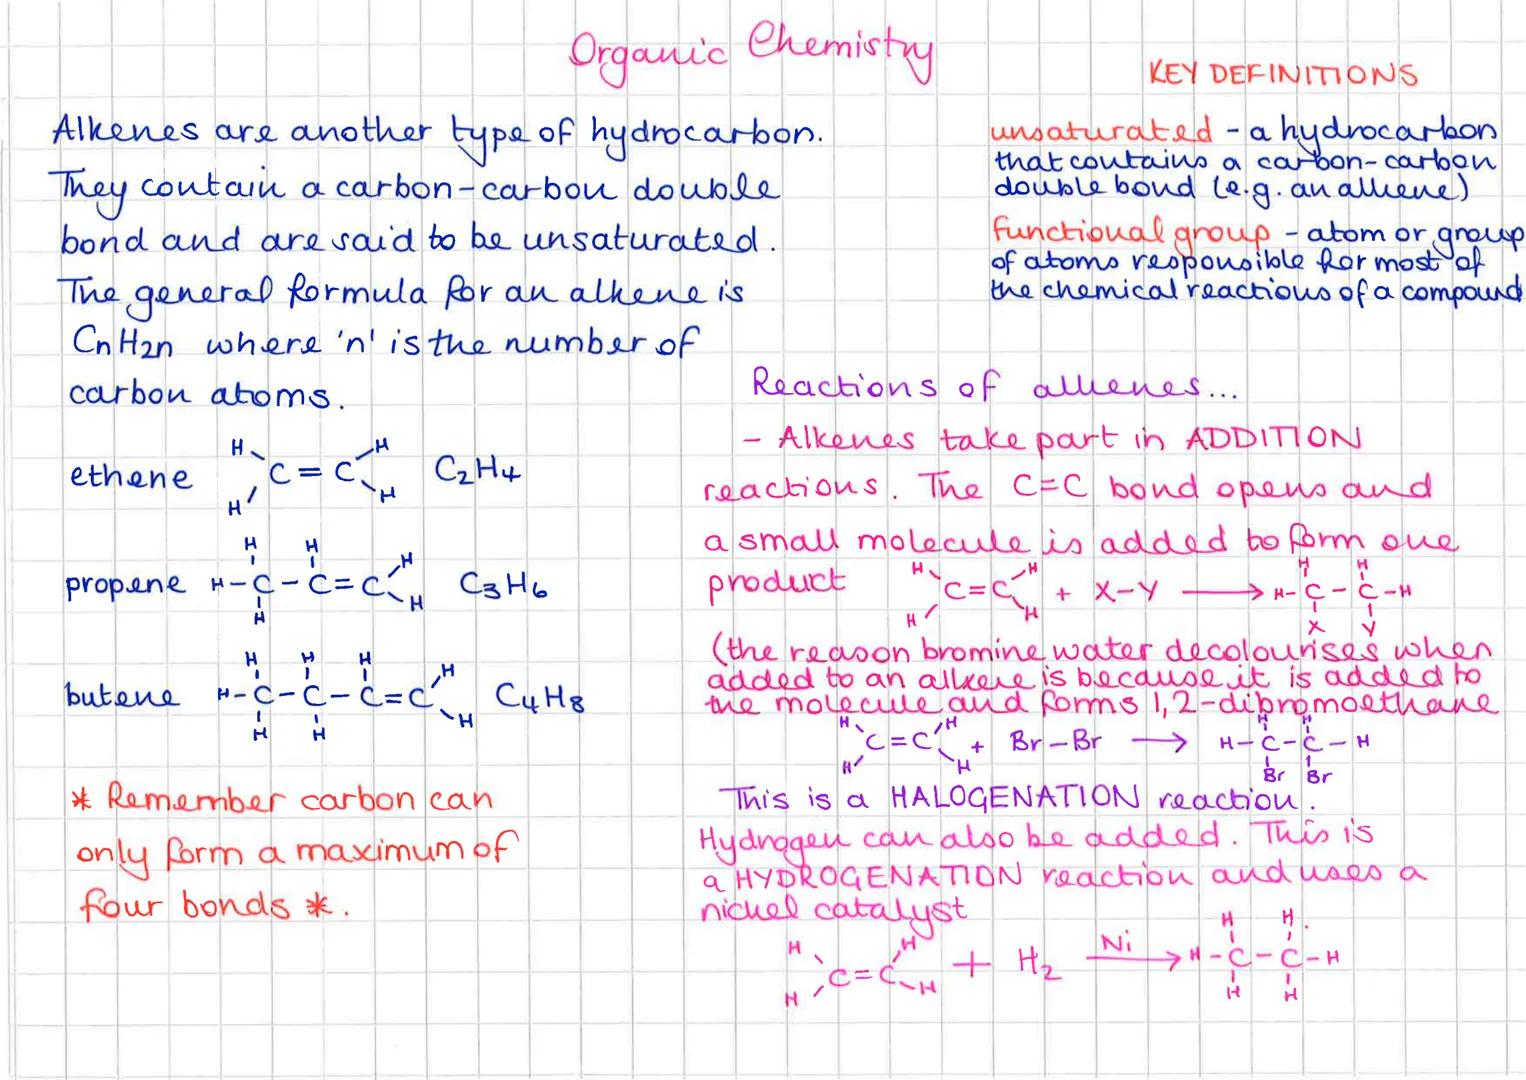 Organic Chemistry
KEY DEFINITIONS
Alkenes are another type of hydrocarbon.
They contain a carbon-carbon double
bond and are said to be unsaturated.
The general formula for an alkene is
CnH2n where 'n' is the number of
carbon atoms.
unsaturated - a hydrocarbon
that contains a carbon-carbon
double bond (e.g. an alkene)
functional group - atom or group
of atoms responsible for most of
the chemical reactions of a compound
ethene
H H
C = C
H H
C₂H₄
propene
H H H
H-C-C=C
H H
C₃H₆
butene
H H H H
H-C-C-C=C
H H H
C₄H₈
* Remember carbon can
only form a maximum of
four bonds *.
Reactions of alkenes...
- Alkenes take part in ADDITION
reactions. The C=C bond opens and
a small molecule is added to form one
product
H H H H
C=C + X-Y → H-C-C-H
H H X Y
(the reason bromine water decolourises when
added to an alkene is because it is added to
the molecule and forms 1,2-dibromoethane
H H H H
C=C + Br-Br → H-C-C-H
H H Br Br
This is a HALOGENATION reaction.
Hydrogen can also be added. This is
a HYDROGENATION reaction and uses a
nickel catalyst
H H H H
C=C + H₂ Ni → H-C-C-H
H H H H